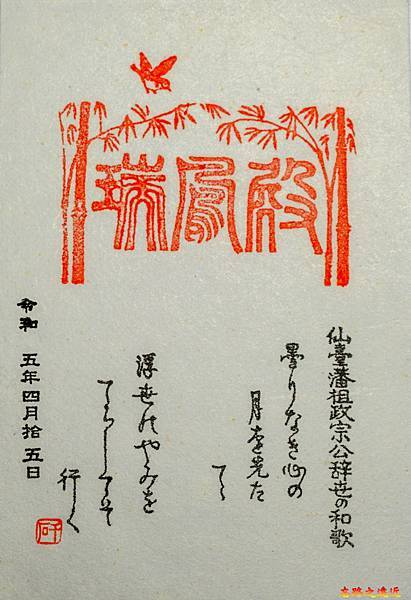 瑞鳳殿
仙臺藩祖政宗公辞世の和歌
曇りなき心の
月を先た
てゝ
浮世のやみを
てらしてそ
行く
令和 五年四月拾五日